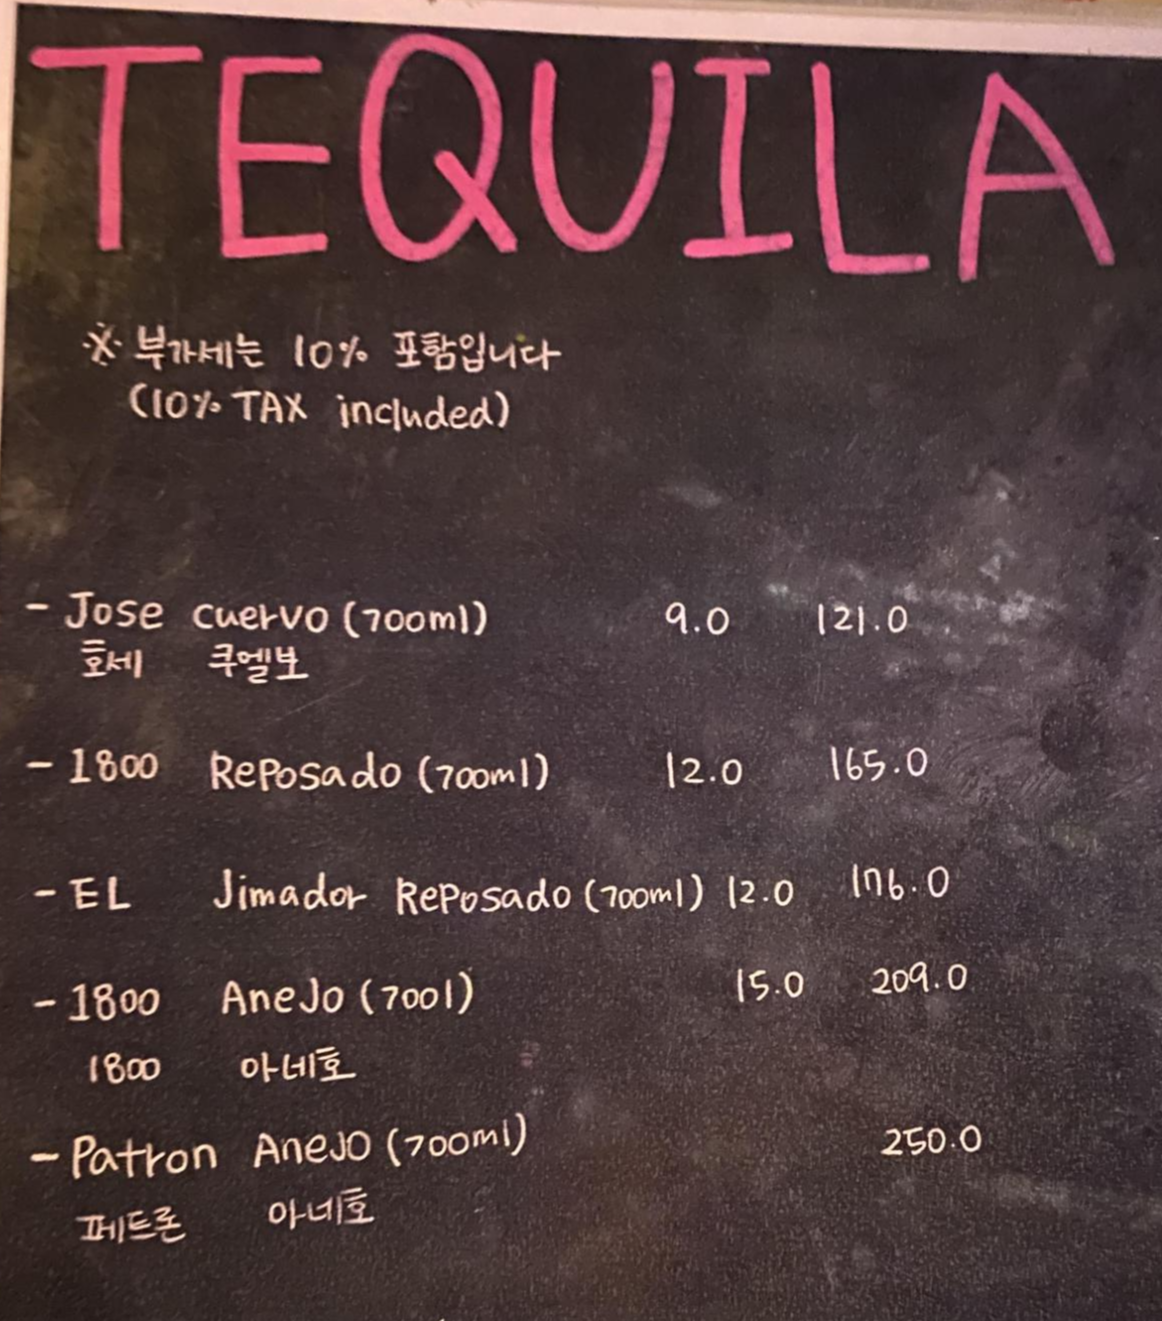 TEQUILA
※ 부가세는 10% 포함입니다
(10% TAX included)
- Jose cuervo (700ml) 9.0 121.0
호세 쿠엘보
- 1800 Reposado (700ml) 12.0 165.0
- EL Jimador Reposado (700ml) 12.0 176.0
- 1800 AneJo (700l) 15.0 209.0
1800 아네호
- Patron AneJo (700ml) 250.0
페트론 아네호